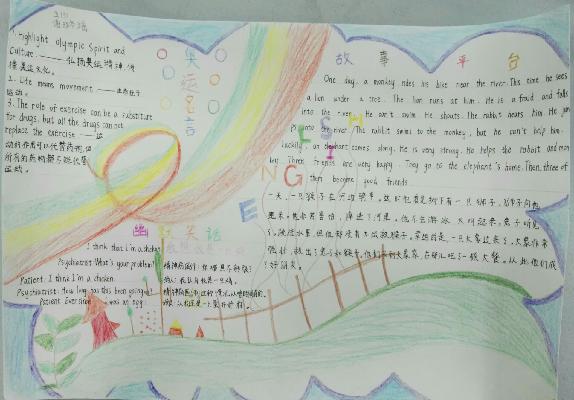 1. Highlight Olympic Spirit and
Culture —— 弘扬奥运精神,传
播奥运文化。
2. Life means movement —— 生命在于
运动。
3. The role of exercise can be a substitute
for drugs, but all the drugs can not
replace the exercise —— 运
动的作用可以代替药物,但
所有的药物都不能代替
运动。
奥运名言
故事平台
One day, a monkey rides his bike near the river. This time he sees
a lion under a tree. The lion runs at him. He is afraid and falls
into the river. He can't swim. He shouts. The rabbit hears him. He jumps
into the river. The rabbit swims to the monkey, but he can't help him.
Luckily, an elephant comes along. He is very strong. He helps the rabbit and mon
key. Three friends are very happy. They go to the elephant's home. Then, three of
them become good friends.
一天,一只猴子在河边骑车。这时他看见树下有一只狮子,狮子向他
跑来。他非常害怕,掉进了河里。他不会游泳,大叫起来。兔子听见
了,跳进水里,但他却没有办法救猴子。幸运的是,一只大象过来了。大象非常
强壮,救出了兔子和猴子。他们来到大象家,在那儿吃了一顿大餐。从此他们成
了好朋友。
ENGLISH
幽默笑话
I think that I'm a chicken
Psychiatrist: What's your problem?
Patient: I think I'm a chicken.
Psychiatrist: How long has this been going on?
Patient: Ever since I was an egg.
精神病医师:你哪里不舒服?